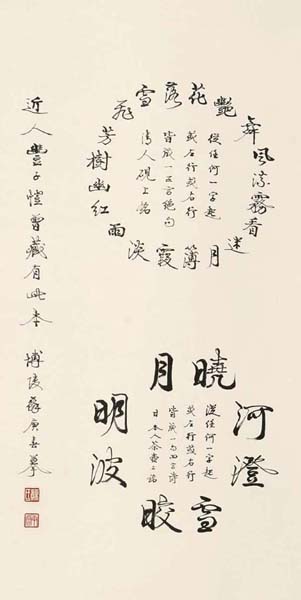 落花艷舞風流霧香迷月薄霞淡雨紅幽樹芳飛雪
從任何一字起
或左行或右行
皆成一五言絕句
清人硯上銘
曉河澄雪皎波明月
從任何一字起
或左行或右行
皆成一句四言詩
日本人茶壺之銘
近人豐子愷曾藏有此本 博陵蘇庚春摹